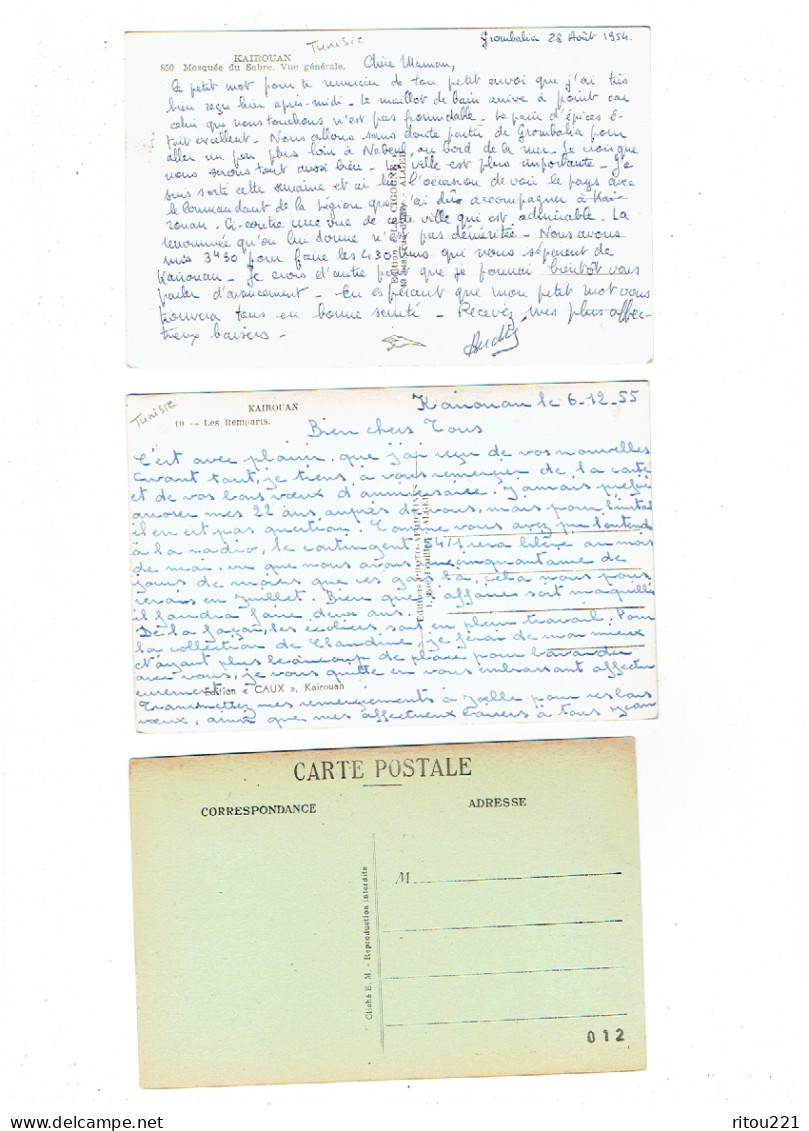 Grombalia 28 Août 1954.
Tunisie
KAIROUAN
850 Mosquée du Sabre. Vue générale.
Chère Maman,
Ce petit mot pour te remercier de ton petit envoi que j'ai très
bien reçu hier après-midi - Le maillot de bain arrive à point car
celui que nous touchons n'est pas formidable. Le pain d'épices é-
tait excellent - Nous allons sans doute partir de Grombalia pour
aller un peu plus loin à Nabeul, au bord de la mer. Je crois que
nous serons tout aussi bien. La ville est plus importante - Je
suis sorti cette semaine et ai eu l'occasion de voir le pays avec
le Commandant de la région que j'ai dû accompagner à Kai-
rouan. Ci-contre une vue de cette ville qui est admirable. La
renommée qu'on lui donne n'est pas déméritée - Nous avons
mis 3H30 pour faire les 130 kms qui nous séparent de
Kairouan - Je crois d'autre part que je pourrai bientôt vous
parler d'avancement - En espérant que mon petit mot vous
trouvera tous en bonne santé - Recevez mes plus affec-
tueux baisers -
Edition « LA CIGOGNE »
ALGER
Tunisie
KAIROUAN
10 -- Les Remparts.
Kairouan le 6-12-55
Bien chers Tous
C'est avec plaisir, que j'ai reçu de vos nouvelles
avant tout, je tiens, à vous remercier de la carte
et de vos bons vœux d'anniversaire. J'aurais préféré
arroser mes 22 ans auprès de vous, mais pour l'instant
il en est pas question. Comme vous avez pu l'entendre
à la radio, le contingent 54/1 sera libéré au mois
de mai, vu que nous avons une cinquantaine de
jours de moins que ces gars là, cela nous pous
serais en Juillet. Bien que l'affaire soit maquillée
il faudra faire deux ans.
De la façon, les écoliers sont en plein travail. Pour
la collection de Claudine, je ferai de mon mieux
N'ayant plus beaucoup de place pour bavarder
avec vous, je vous quitte en vous embrassant affectu
eusement
Transmettez mes remerciements à Joëlle pour ses bons
vœux, ainsi que mes affectueux baisers à tous Jean
Edition « CAUX », Kairouan
Editions PHOTO-AFRICAINES
ALGER
CARTE POSTALE
CORRESPONDANCE
ADRESSE
M
Cliché E. M. - Reproduction interdite
012
ritou221